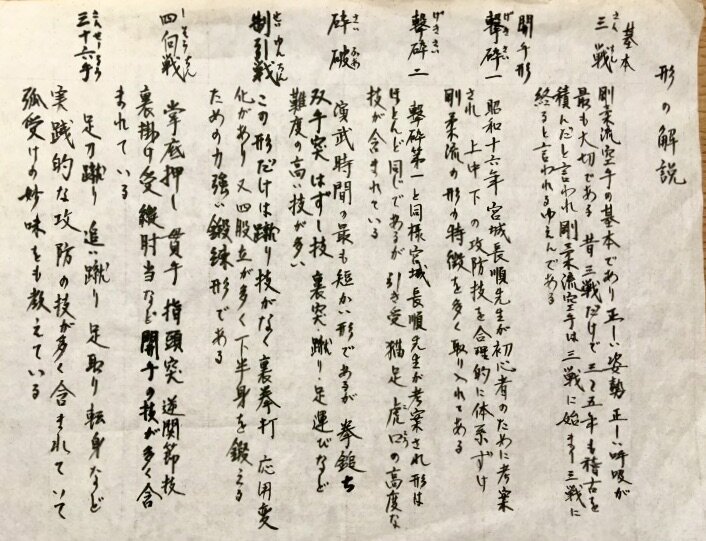 形の解説
基本
三戦 剛柔流空手の基本であり正しい姿勢正しい呼吸が
さんちん
最も大切である 昔 三戦だけで三〜五年も稽古を
積んだと言われ剛柔流空手は三戦に始まり三戦に
終ると言われるゆえんである
開手形
撃砕一 昭和十六年宮城長順先生が初心者のために考案
げきさい
され 上中下の攻防技を合理的に体系ずけ
剛柔流の形の特徴を多く取り入れてある
撃砕二 撃砕第一と同様宮城長順先生が考案され形は
げきさい
ほとんど同じであるが 引き受 猫足 虎口の高度な
技が含まれている
砕破 演武時間の最も短かい形であるが 拳鎚ち
さいふあ
双手突 はずし技 裏突 蹴り 足運びなど
難度の高い技が多い
制引戦 この形だけは蹴り技がなく裏拳打 応用変
せいゆんちん
化があり 又四股立が多く下半身を鍛える
ための力強い鍛錬形である
四向戦 掌底押し 貫手 指頭突 逆関節技
しそうちん
裏掛け受 縦肘当など 開手の技が多く含
まれている
三十六手 足刀蹴り 追い蹴り 足取り転身など
さんせーるう
実践的な攻防の技が多く含まれていて
弧受けの妙味をも教えている